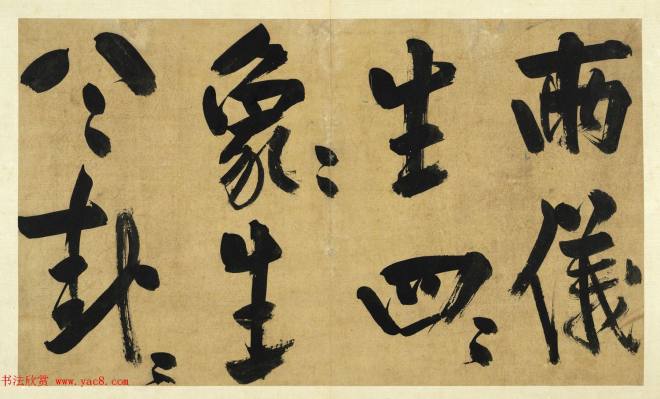 兩儀
生四〻
象〻生
八〻卦〻
书法欣赏 www.yac8.com